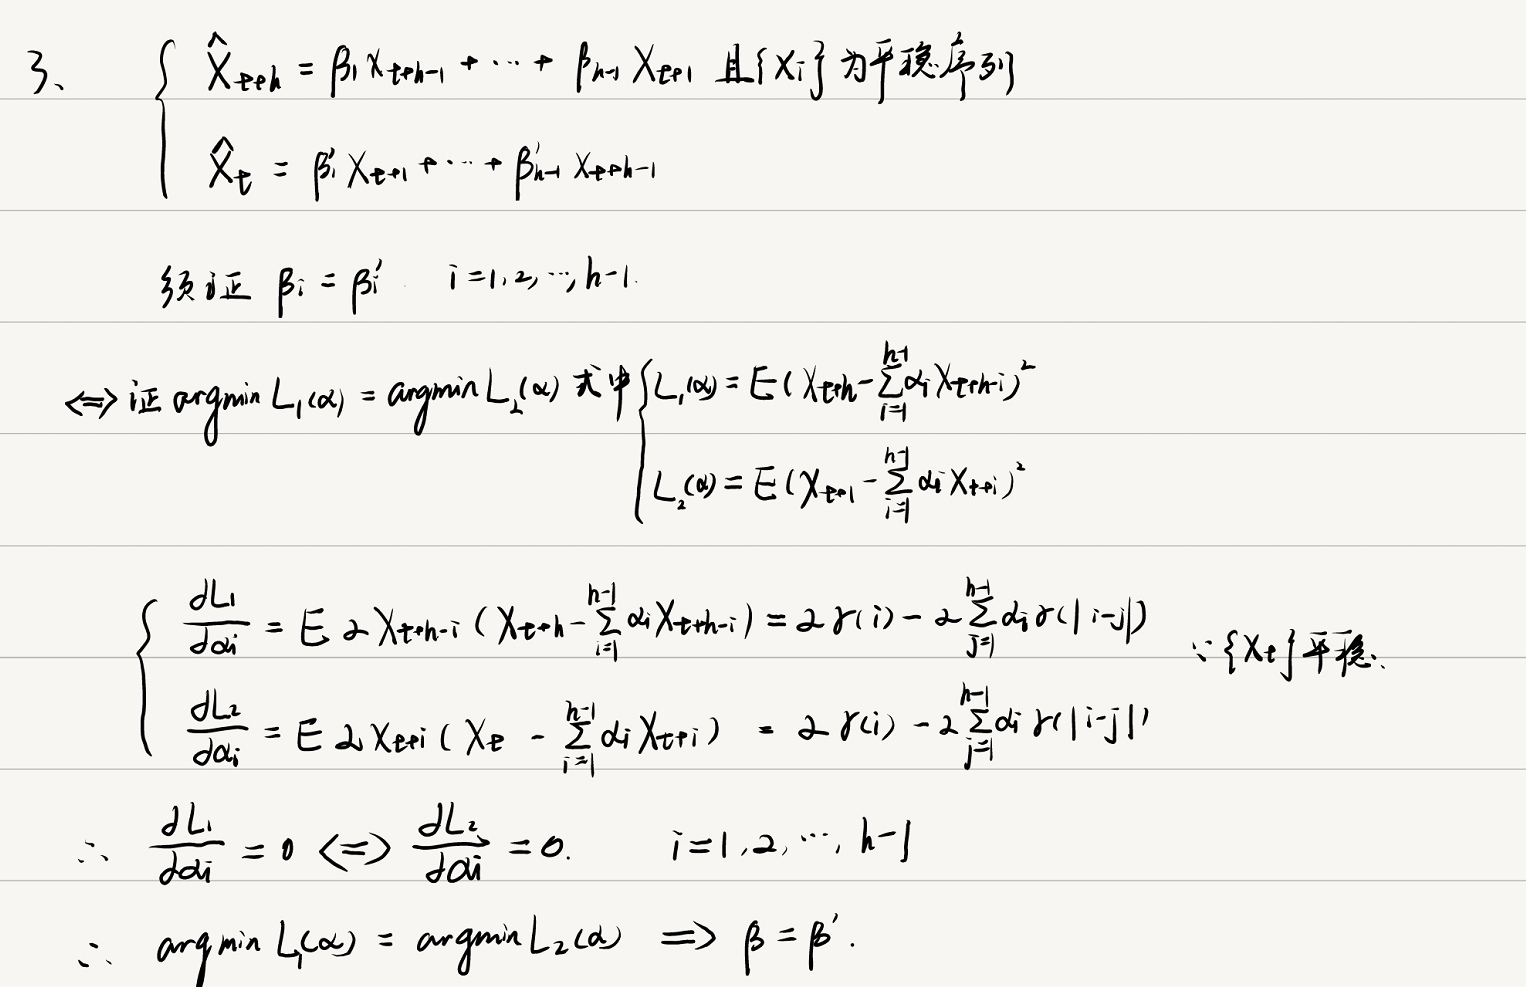 3、 { X̂_{t+h} = β₁X_{t+h-1} + ··· + β_{h-1}X_{t+1} 且{X_i}为平稳序列
X̂_t = β₁'X_{t+1} + ··· + β'_{h-1}X_{t+h-1}
须证 β_i = β_i' i=1,2,···,h-1.
<=> 证 argmin L₁(α) = argmin L₂(α) 式中 { L₁(α) = E(X_{t+h} - Σ_{i=1}^{h-1} α_i X_{t+h-i})²
L₂(α) = E(X_{t+1} - Σ_{i=1}^{h-1} α_i X_{t+i})²
{ dL₁/dα_i = E 2X_{t+h-i}(X_{t+h} - Σ_{i=1}^{h-1} α_i X_{t+h-i}) = 2γ(i) - 2Σ_{j=1}^{h-1} α_i γ(|i-j|)
∵{X_t}平稳.
dL₂/dα_i = E 2X_{t+i}(X_t - Σ_{i=1}^{h-1} α_i X_{t+i}) = 2γ(i) - 2Σ_{j=1}^{h-1} α_i γ(|i-j|)
∴ dL₁/dα_i = 0 <=> dL₂/dα_i = 0. i=1,2,···,h-1
∴ argmin L₁(α) = argmin L₂(α) => β = β'.